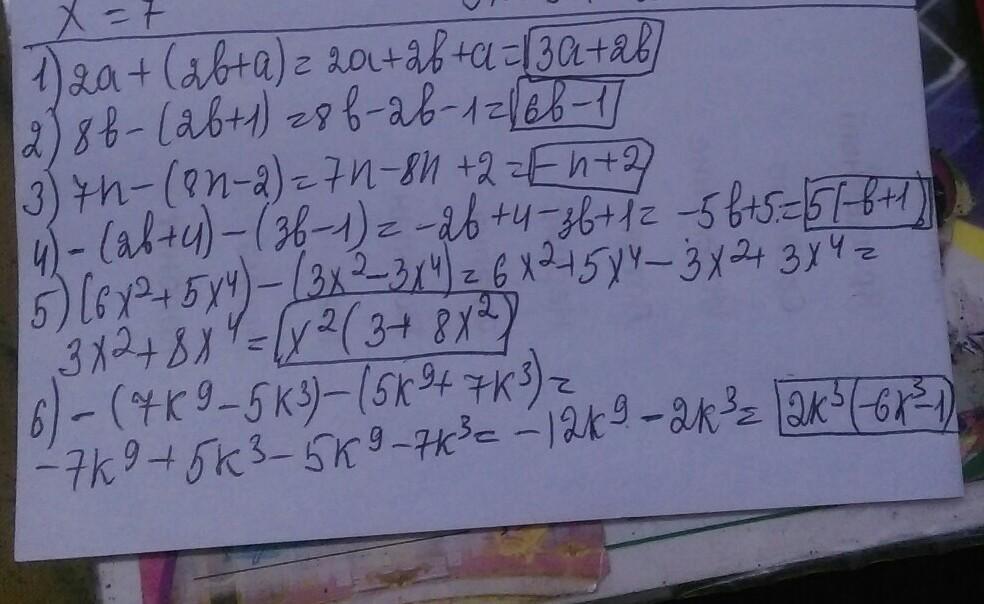 x = 7
1) 2a + (2b+a) = 2a+2b+a = 3a+2b
2) 8b - (2b+1) = 8b-2b-1 = 6b-1
3) 7n - (8n-2) = 7n-8n+2 = -n+2
4) - (2b+4) - (3b-1) = -2b+4-3b+1 = -5b+5 = 5(-b+1)
5) (6x²+5x⁴) - (3x²-3x⁴) = 6x²+5x⁴-3x²+3x⁴ =
3x²+8x⁴ = x²(3+8x²)
6) - (7k⁹-5k³) - (5k⁹+7k³) =
-7k⁹+5k³-5k⁹-7k³ = -12k⁹-2k³ = 2k³(-6x³-1)